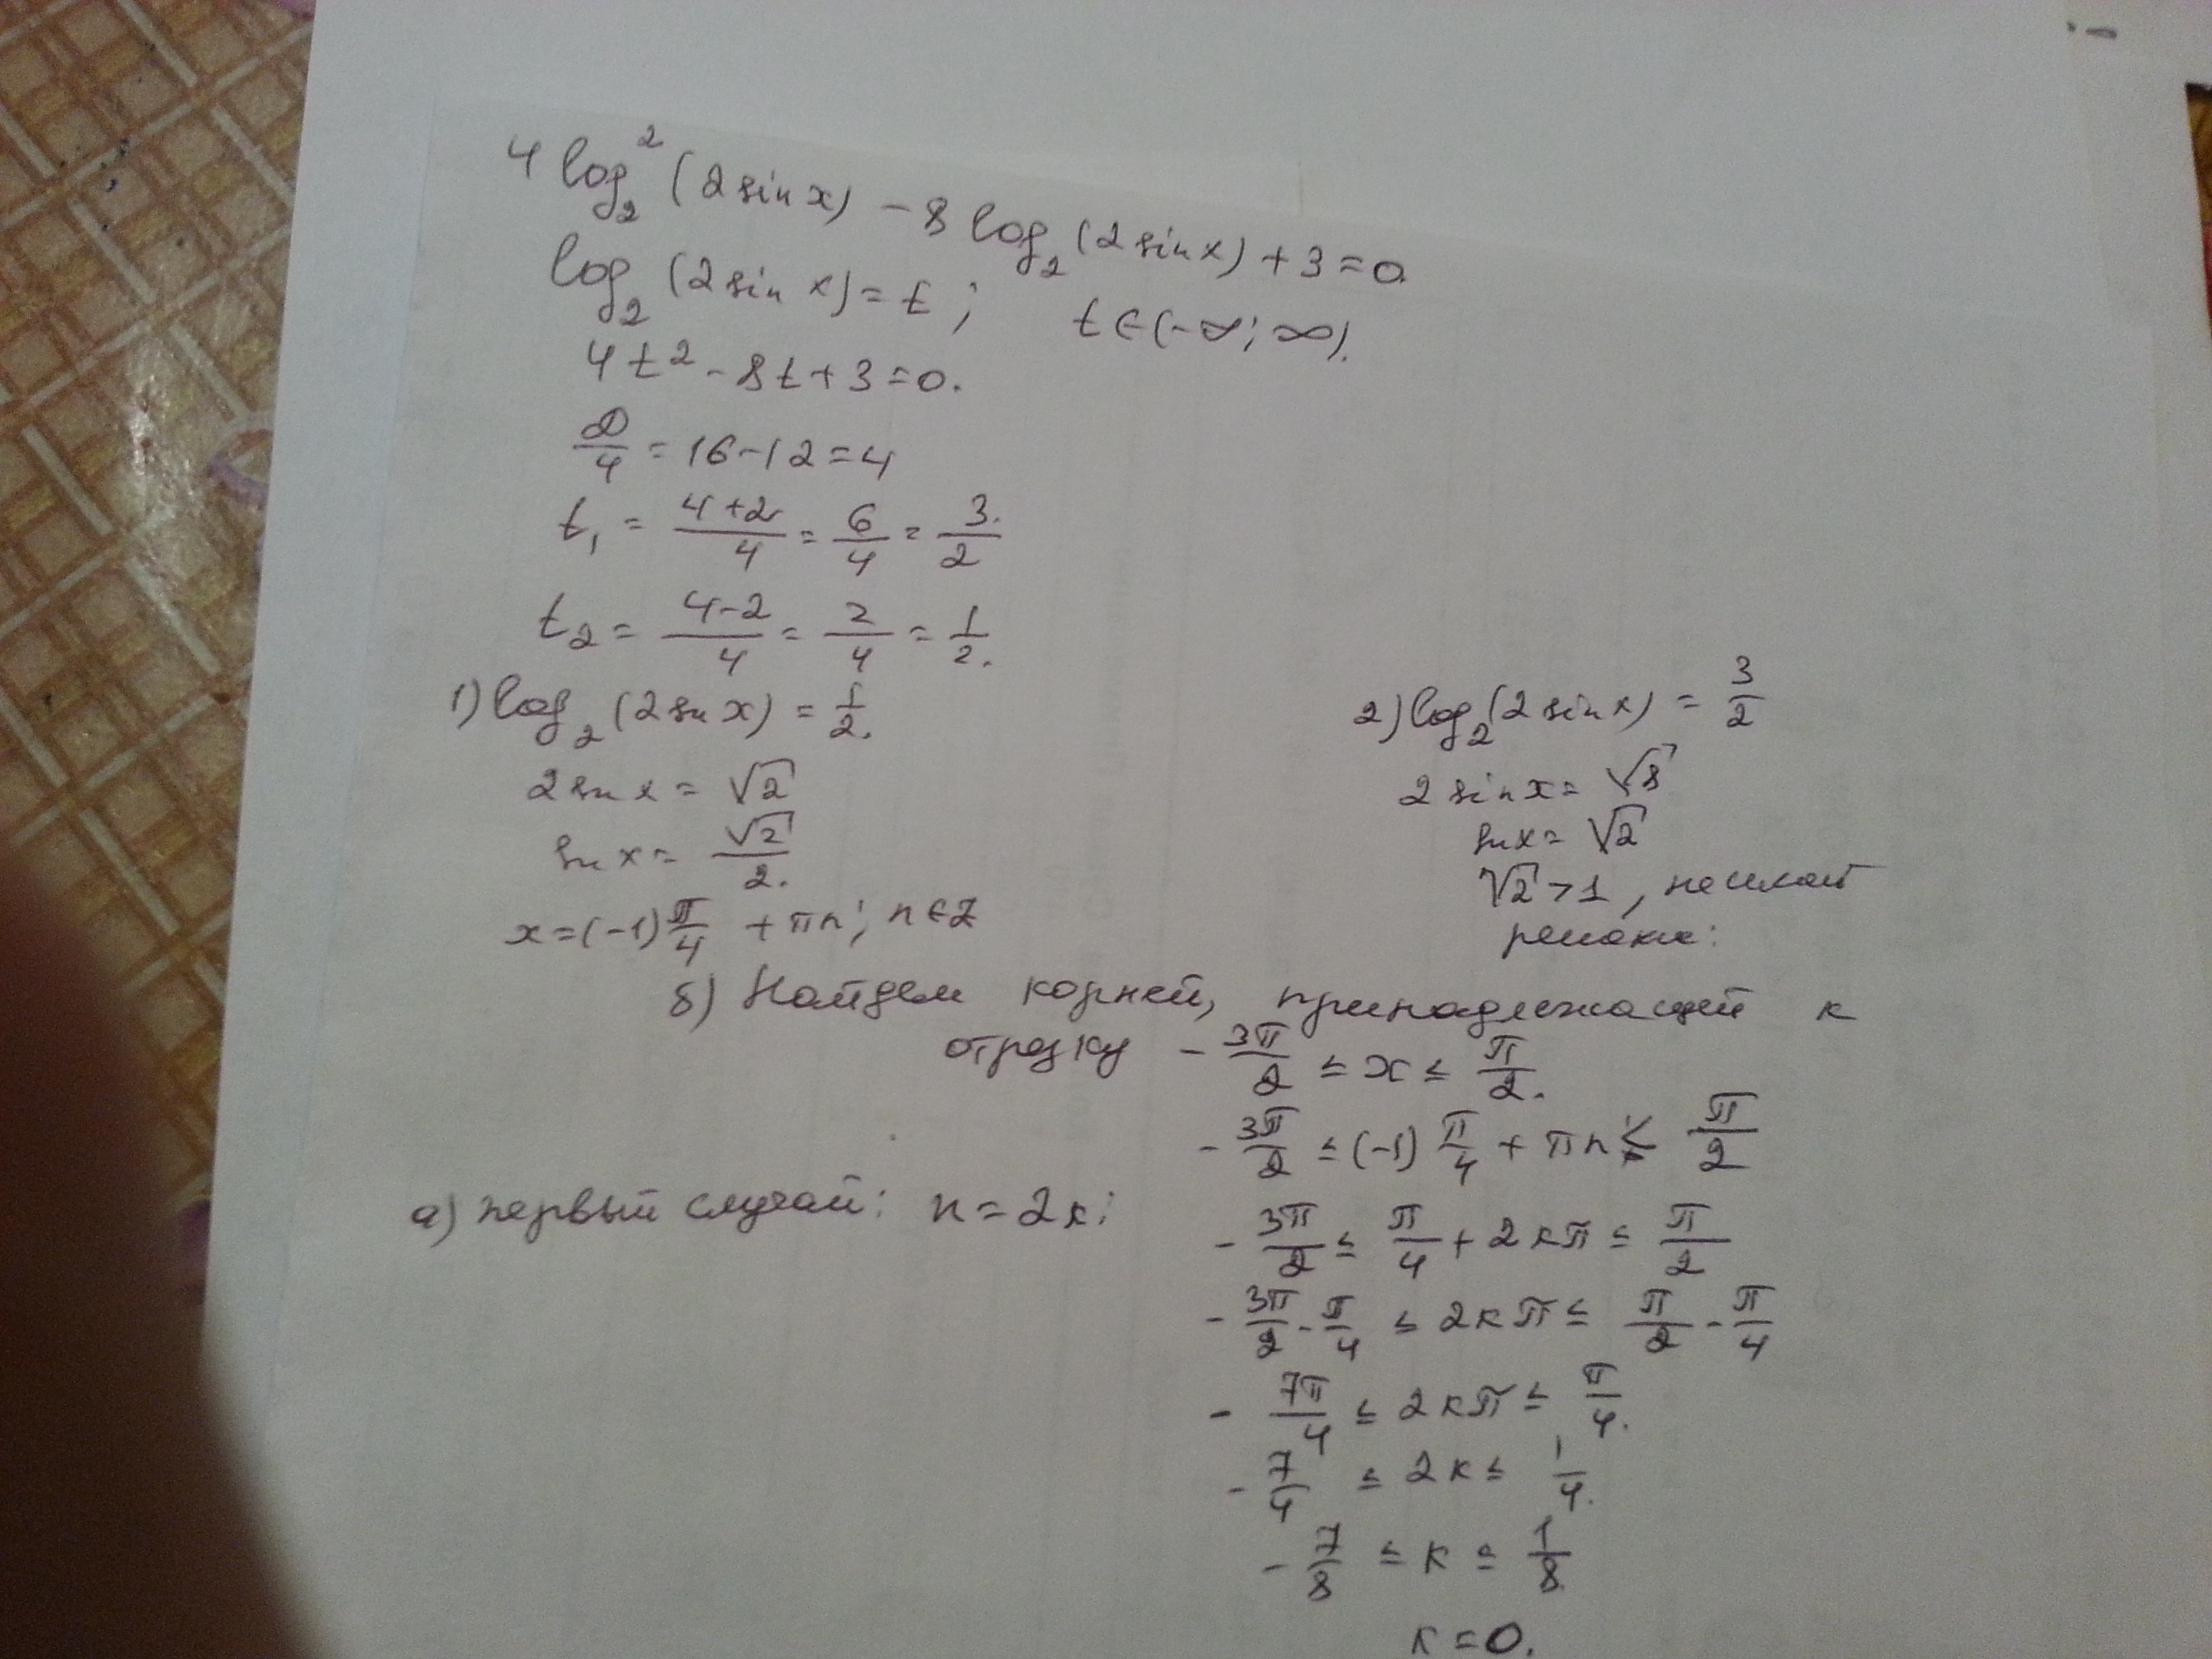 4 log₂² (2 sin x) - 8 log₂ (2 sin x) + 3 = 0.
log₂ (2 sin x) = t ; t ∈ (-∞; ∞).
4t² - 8t + 3 = 0.
D/4 = 16 - 12 = 4
t₁ = (4+2)/4 = 6/4 = 3/2.
t₂ = (4-2)/4 = 2/4 = 1/2.
1) log₂ (2 sin x) = 1/2.
2 sin x = √2
sin x = √2/2.
x = (-1) π/4 + πn; n ∈ Z
2) log₂ (2 sin x) = 3/2
2 sin x = √8
sin x = √2
√2 > 1, не имеет
решение:
б) Найдем корней, принадлежащей к
отрезку - 3π/2 ≤ x ≤ π/2.
- 3π/2 ≤ (-1) π/4 + πn ≤ π/2
а) первый случай: n = 2к; - 3π/2 ≤ π/4 + 2кπ ≤ π/2
- 3π/2 - π/4 ≤ 2кπ ≤ π/2 - π/4
- 7π/4 ≤ 2кπ ≤ π/4.
- 7/4 ≤ 2к ≤ 1/4.
- 7/8 ≤ к ≤ 1/8.
к = 0.